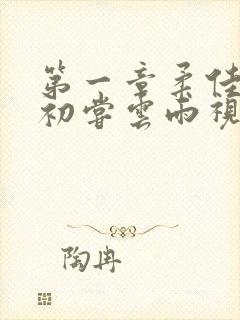 第一章柔佳
初嘗雲雨視
陶冉